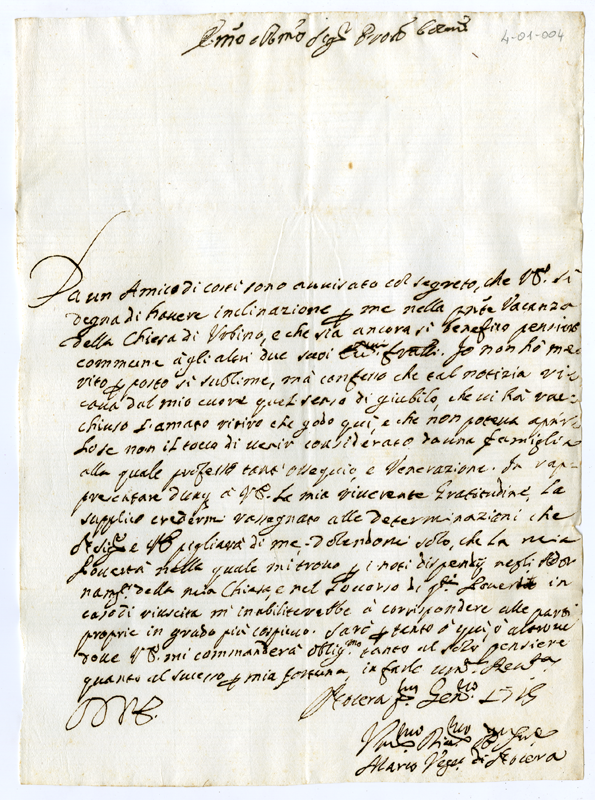 4-01-004
Da un Amico di costì sono avvisato col segreto, che V.S. si
degna di havere inclinazione p me nella pnte Vacanza
della Chiesa di Urbino, e che sia ancora sì benefico pensiere
commune agli altri due suoi fratelli. Io non hò me
rito p posto sì sublime, mà confesso che tal notizia ri
cava dal mio cuore quel senso di giubilo, che vi hà rac
chiuso l'amato ritiro che godo qui, e che non poteva aprir
lo se non il tocco di venir considerato da una famiglia
alla quale professo tant'ossequio, e Venerazione. In rap
presentare à V.S. la mia riverente Gratitudine, La
supplico credermi rassegnato alle determinazioni che
e V.S. pigliarà di me, dolendomi solo, che la mia
Povertà nella quale mi trovo p i noti dispendij negli
della mia Chiesa, e nel soccorso di Povertà in
caso di riuscita mi inabiliterebbe à corrispondere alle parti
proprie in grado più cospicuo. Sarò p tanto ò qui, ò altrove
dove V.S. mi commanderà oblig.mo tanto al solo pensiere
quanto al sucesso p mia fortuna, in farle
Nocera p. Gen.ro 1715
D V.S.
Marco Vesc. di Nocera